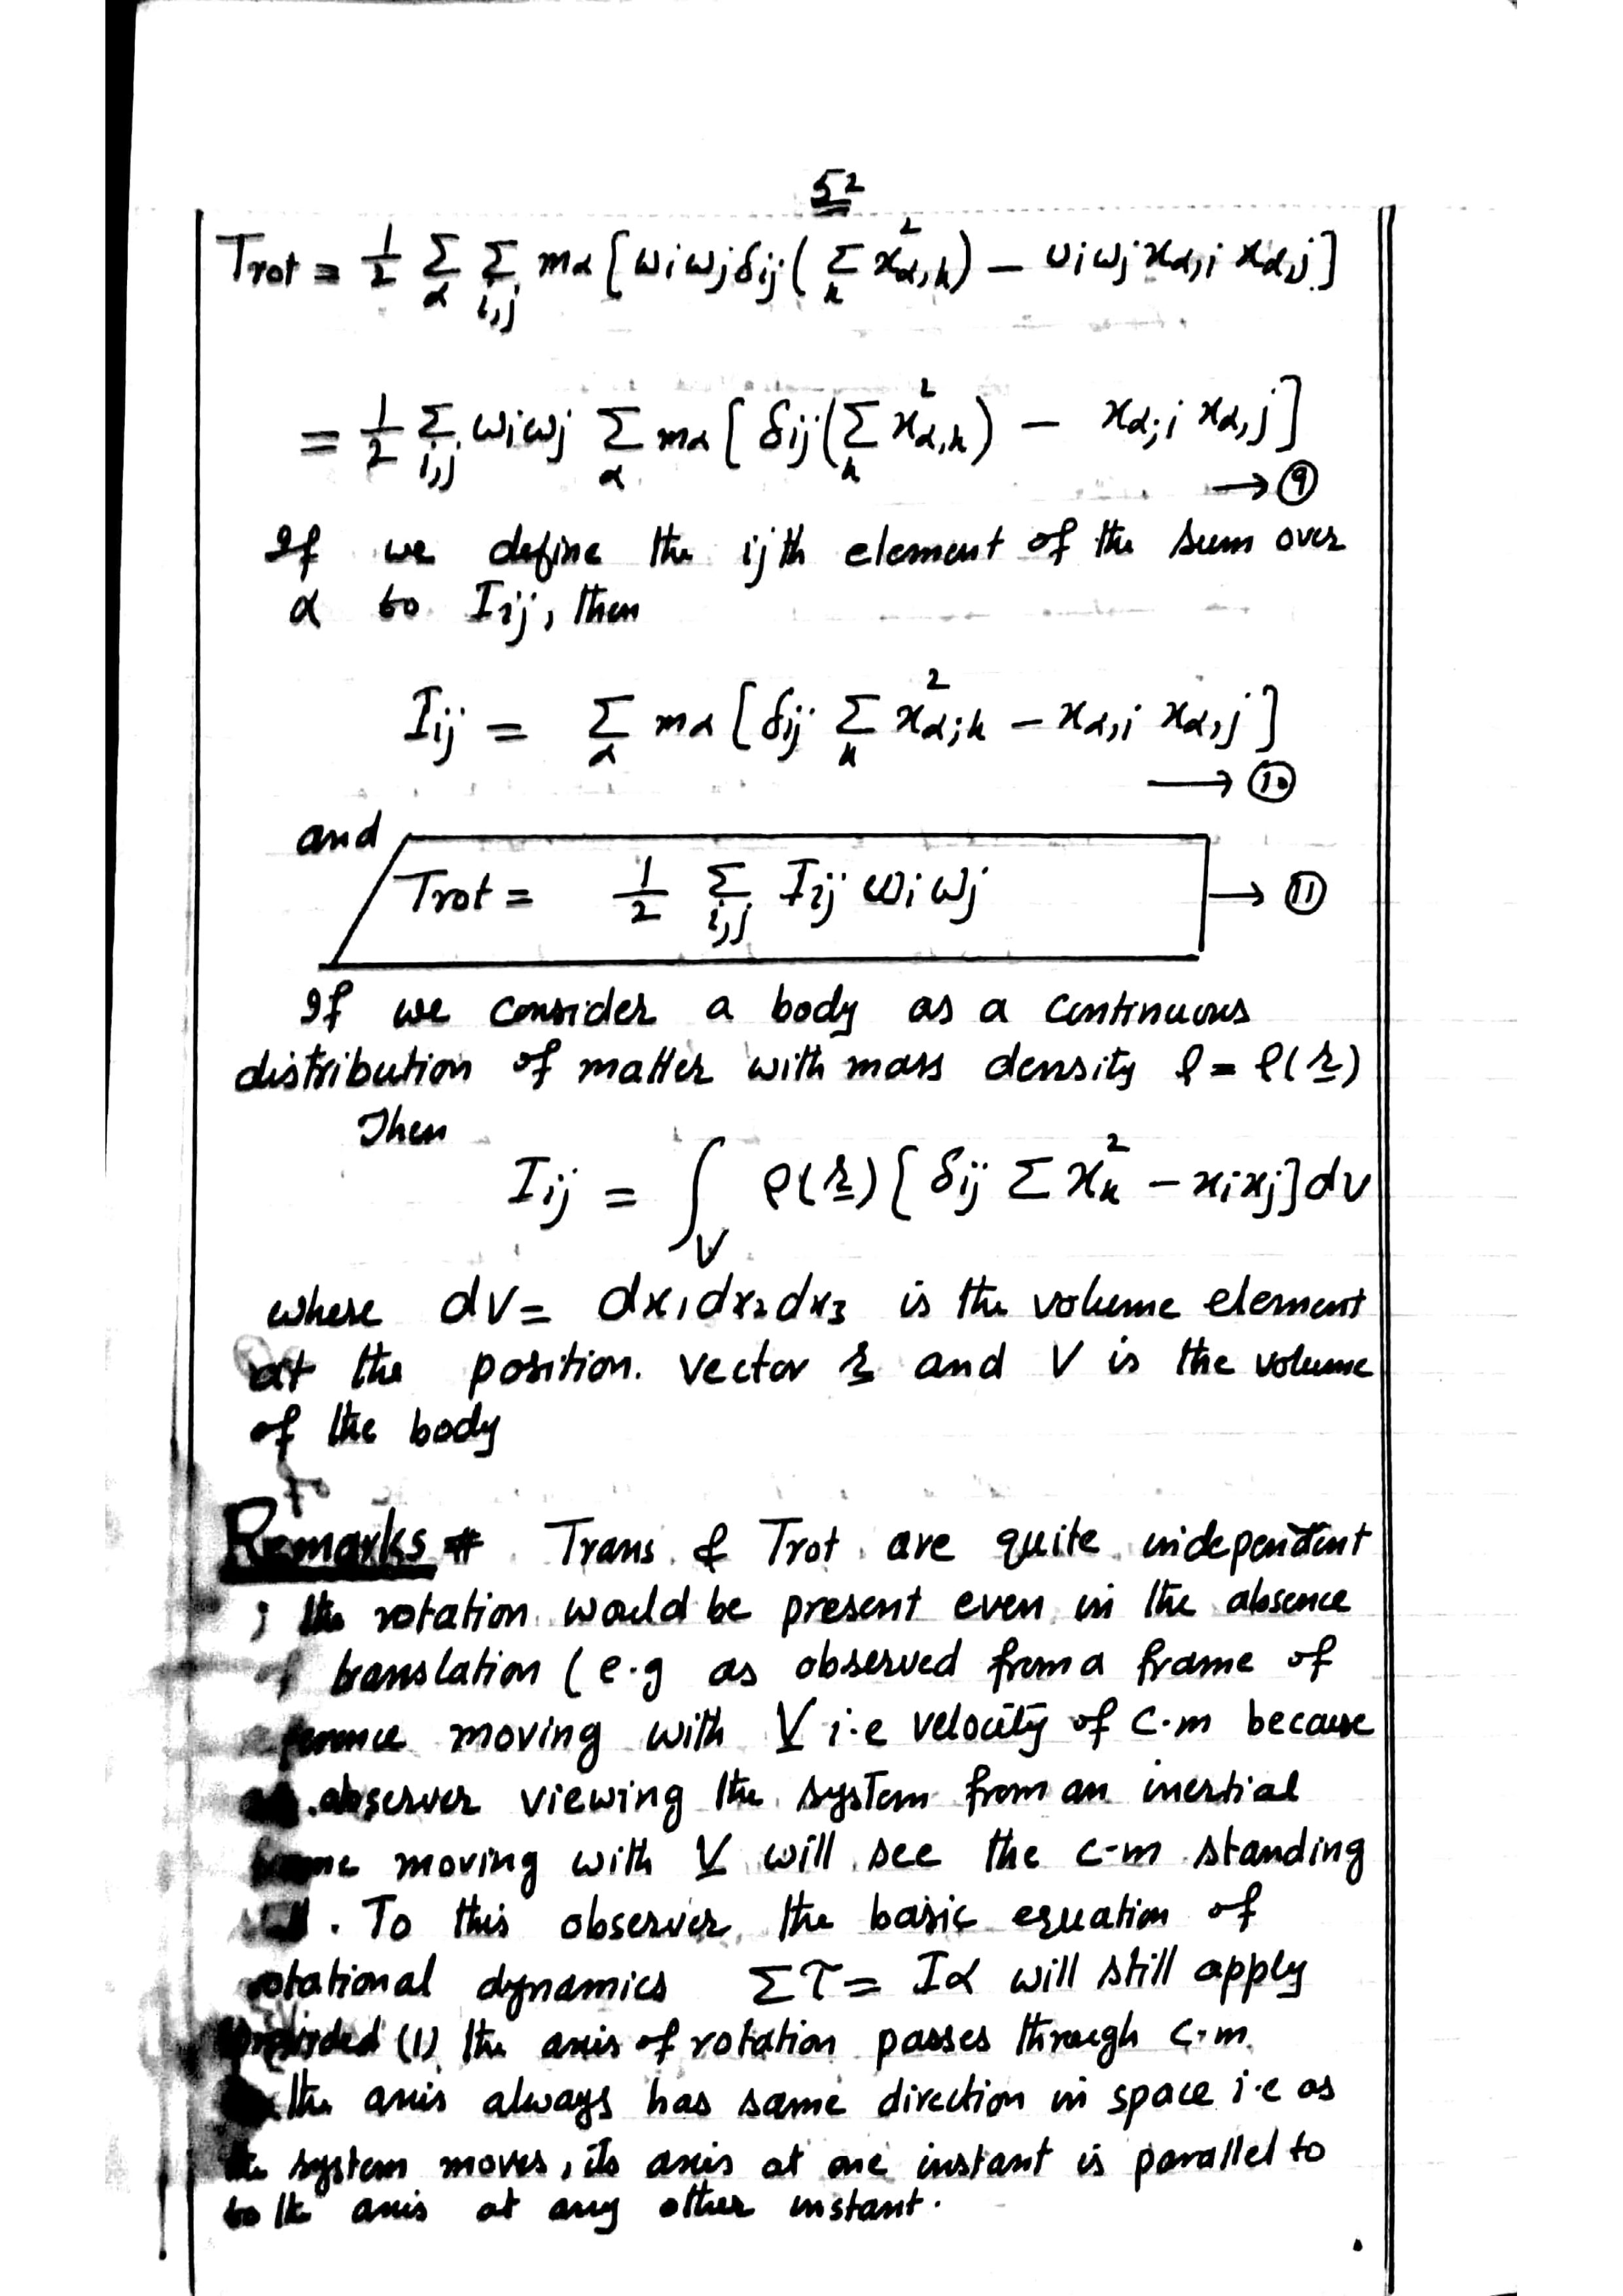 52
Trot = 1/2 Σ_α Σ_i,j mα [ωiωjδij(Σ_k x²α,k) – υiωj xα,i xα,j]
= 1/2 Σ_i,j ωiωj Σ_α mα [δij(Σ_k x²α,k) – xα;i xα,j]
→ ⑨
If we define the ijth element of the sum over
α to Iij, then
Iij = Σ_α mα [δij Σ_k x²α;k – xα,i xα,j]
→ ⑩
and
Trot = 1/2 Σ_i,j Iij ωi ωj → ⑪
If we consider a body as a continuous
distribution of matter with mass density ρ = ρ(r)
Then
Iij = ∫_V ρ(r) [δij Σ x²k – xixj] dv
where dv = dx1dx2dx3 is the volume element
at the position. vector r and V is the volume
of the body
Remarks # Trans & Trot are quite independent
; the rotation would be present even in the absence
of translation (e.g as observed from a frame of
moving with V i.e velocity of C.m because
observer viewing the system from an inertial
moving with V will see the c-m standing
. To this observer, the basic equation of
rotational dynamics Στ = Iα will still apply
provided (1) the axis of rotation passes through C.m.
the axis always has same direction in space i.e as
the system moves, its axis at one instant is parallel to
to the axis at any other instant.